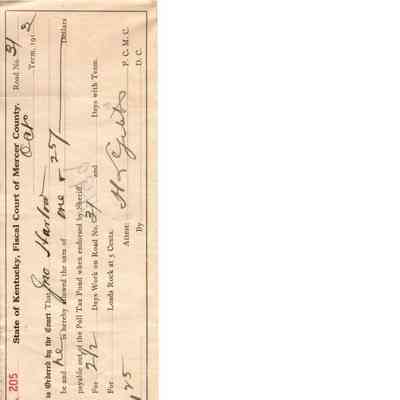 No. 205
State of Kentucky, Fiscal Court of Mercer County. Road No. 31
Term, 191
is Ordered by the Court That Jno Harlow
be and he is hereby allowed the sum of one & 25/ Dollars
payable out of the Poll Tax Fund when endorsed by Sheriff.
For 2 1/2 Days Work on Road No. 31 and Days with Team.
For Loads Rock at 5 Cents.
Attest: P. C. M. C.
By D. C.